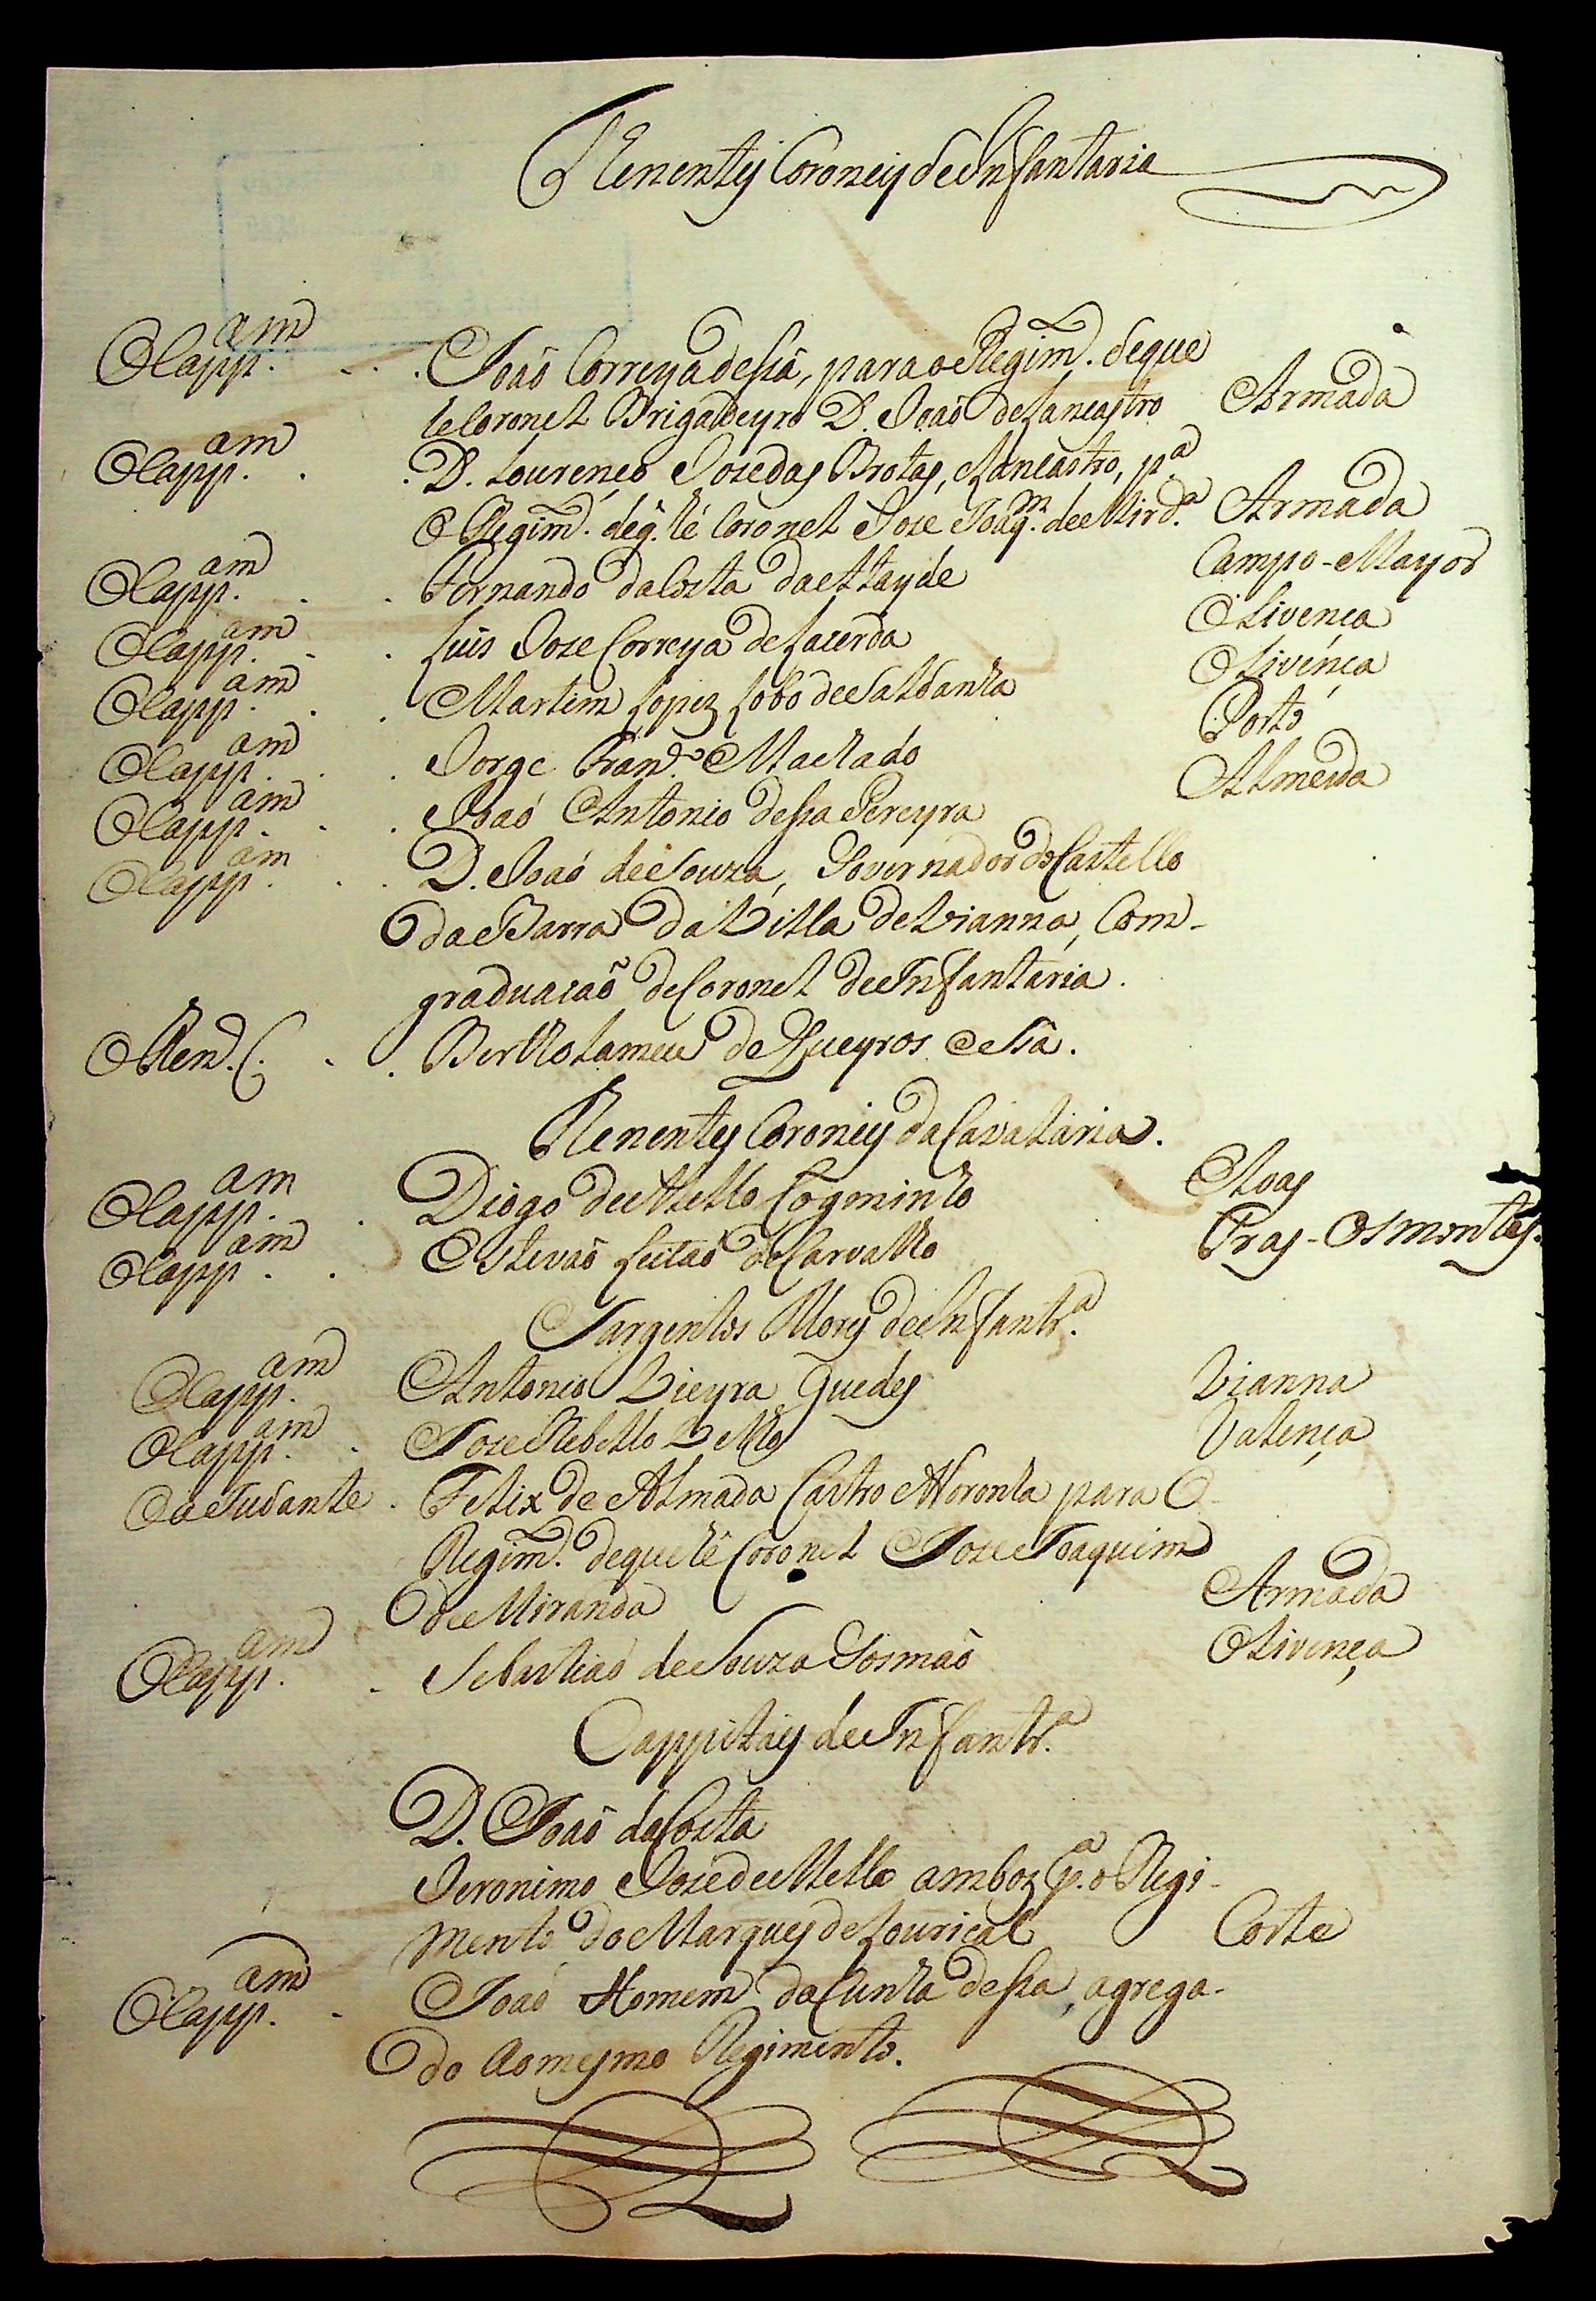 Tenentes Coroneis de Infantaria
O Capp.am João Correya de Sâ, para o Regim.to de que
he Coronel Brigadeyro D. João de Lancastro Armada
O Capp.am D. Lourenço Joze das Brotas, e Lancastro, p.a
o Regim.to de q. hé Coronel Joze Joaq.m de Mird.a Armada
O Capp.am Fernando da Costa da Attayde Campo-Mayor
O Capp.am Luis Joze Correya de Lacerda Olivença
O Capp.am Martim Lopez Lobo de Saldanha Olivença
O Capp.am Jorge Fran.co Machado Porto
O Capp.am Joaó Antonio de Sa Pereyra Almeida
O Capp.am D. Joaó de Souza, Governador do Castello
da Barra da Villa de Vianna, Com-
graduacaõ de Coronel de Infantaria.
O Ten. C. Bertholameu de Queyros e Sâ.
Tenentes Coroneis da Cavalaria.
O Capp.am Diogo de Mello Cogominho Elvas
O Capp.am Estevaõ Leitaõ de Carvalho Tras-Osmontes.
Sargentos Mores de Infantr.a
O Capp.am Antonio Vieyra Guedes Vianna
O Capp.am Joze Rebello Velho Valença
O Ajudante Felix de Almada Castro e Noronha para o
Regim.to de que hê Coronel Joze Joaquim
de Miranda Armada
O Capp.am Sebastiaõ de Souza Gosmaõ Olivença
Cappitaês de Infantr.a
D. João da Costa
Jeronimo Joze de Mello ambos p.a o Regi-
mento do Marques de Louriçal Corte
O Capp.am Joaó Homem da Cunha de Sa, agrega-
do ao mesmo Regimento.